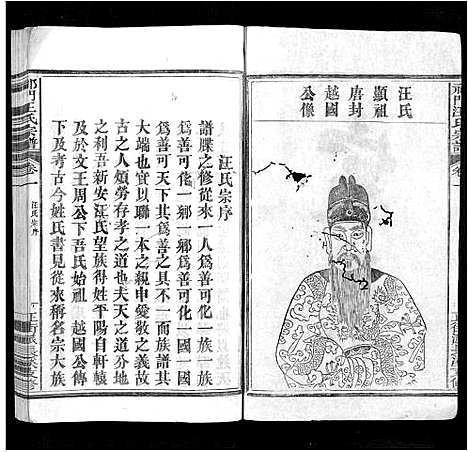 祁門汪氏宗譜
卷一
汪氏
顯祖
唐封
越國
公像
汪氏宗序
譜牒之修從來一人爲善可化一族一族
爲善可化一鄉一鄉爲善可化一國一國
爲善可天下其爲善之具不一而族譜其
大端也宜以聯一本之親申愛敬之義成
古之人煩勞存孝之道也夫天之道分地
之利吾新安汪氏望族得姓平陽自軒轅
及於文王周公下吾氏始祖 越國公傳
下及考古今姓氏書見從來稱名宗大族
祁門汪氏宗譜
卷一
汪氏宗序
一